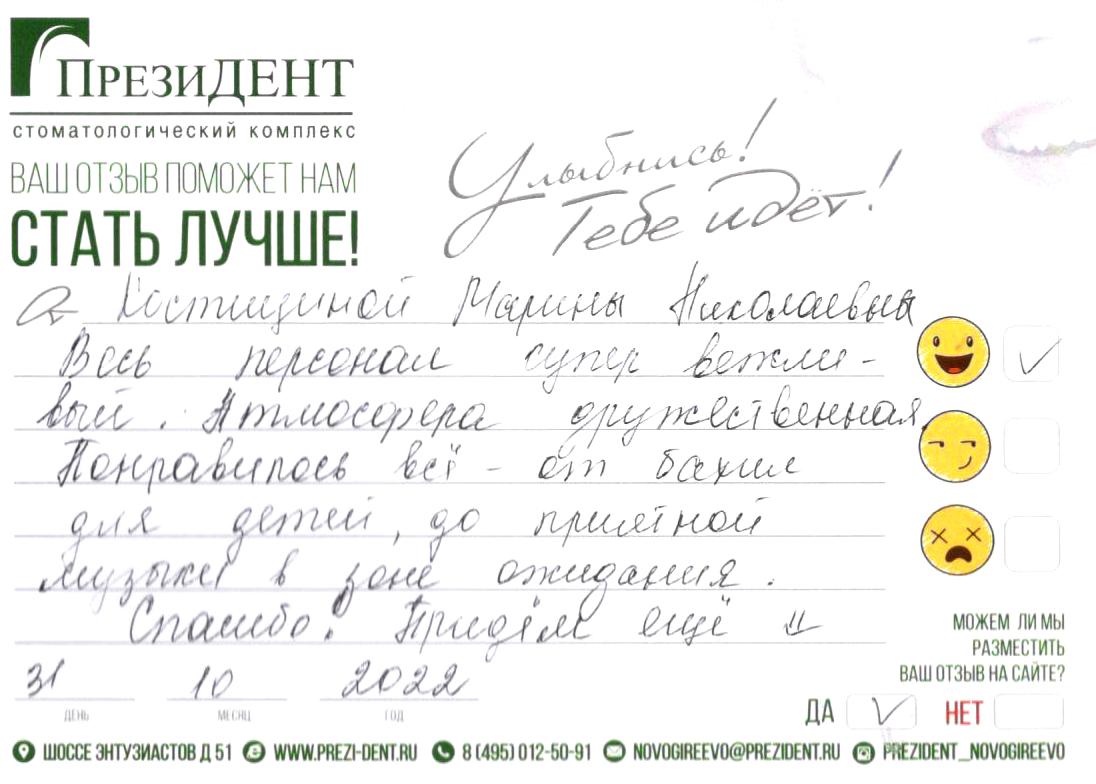 ПРЕЗИДЕНТ
стоматологический комплекс
ВАШ ОТЗЫВ ПОМОЖЕТ НАМ
СТАТЬ ЛУЧШЕ!
Улыбнись!
Тебе идёт!
От Костициной Марины Николаевны
Весь персонал супер вежли-
вый. Атмосфера дружественная.
Понравилось всё - от бахил
для детей, до приятной
музыки в зоне ожидания.
Спасибо! Придём ещё
31 10 2022
ДЕНЬ МЕСЯЦ ГОД
МОЖЕМ ЛИ МЫ
РАЗМЕСТИТЬ
ВАШ ОТЗЫВ НА САЙТЕ?
ДА НЕТ
ШОССЕ ЭНТУЗИАСТОВ Д 51 WWW.PREZI-DENT.RU 8 (495) 012-50-91 NOVOGIREEVO@PREZIDENT.RU PREZIDENT_NOVOGIREEVO